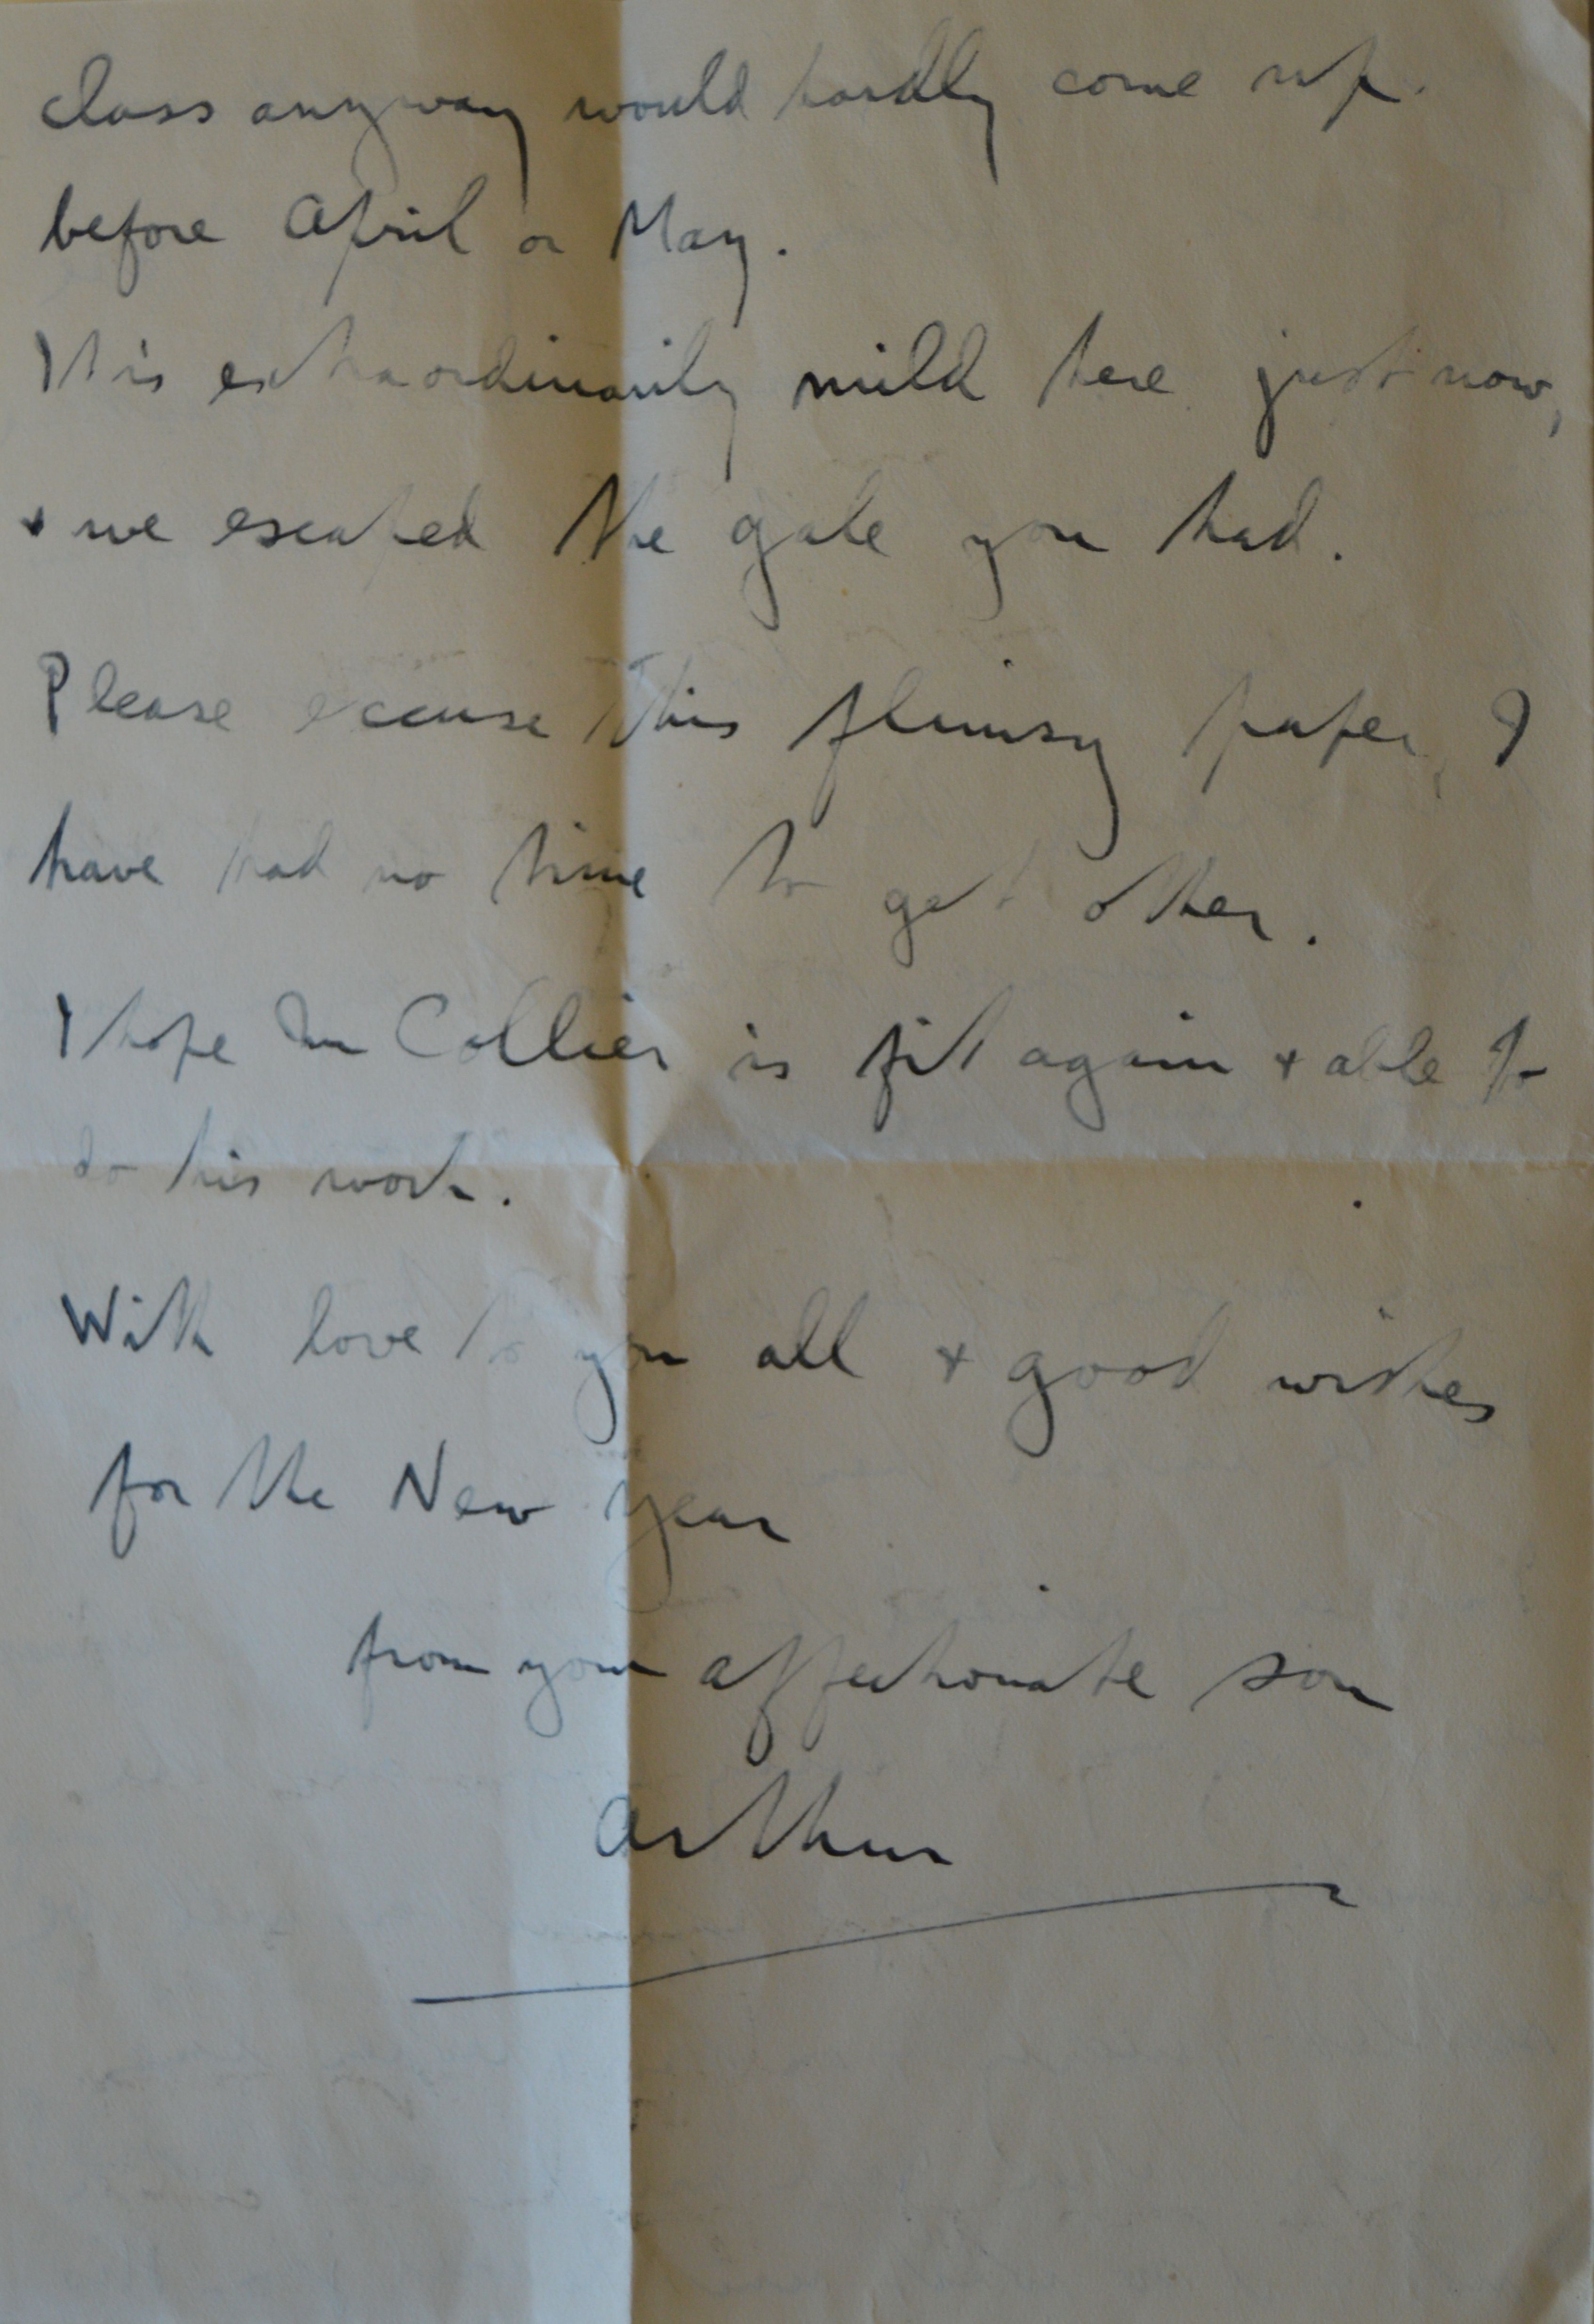 class anyway would hardly come up.
before April or May.
It is extraordinarily mild here just now,
+ we escaped the gale you had.
Please excuse this flimsy paper, I
have had no time to get other.
I hope Mr Collier is fit again + able to
do his work.
With love to you all + good wishes
for the New Year
from your affectionate son
Arthur